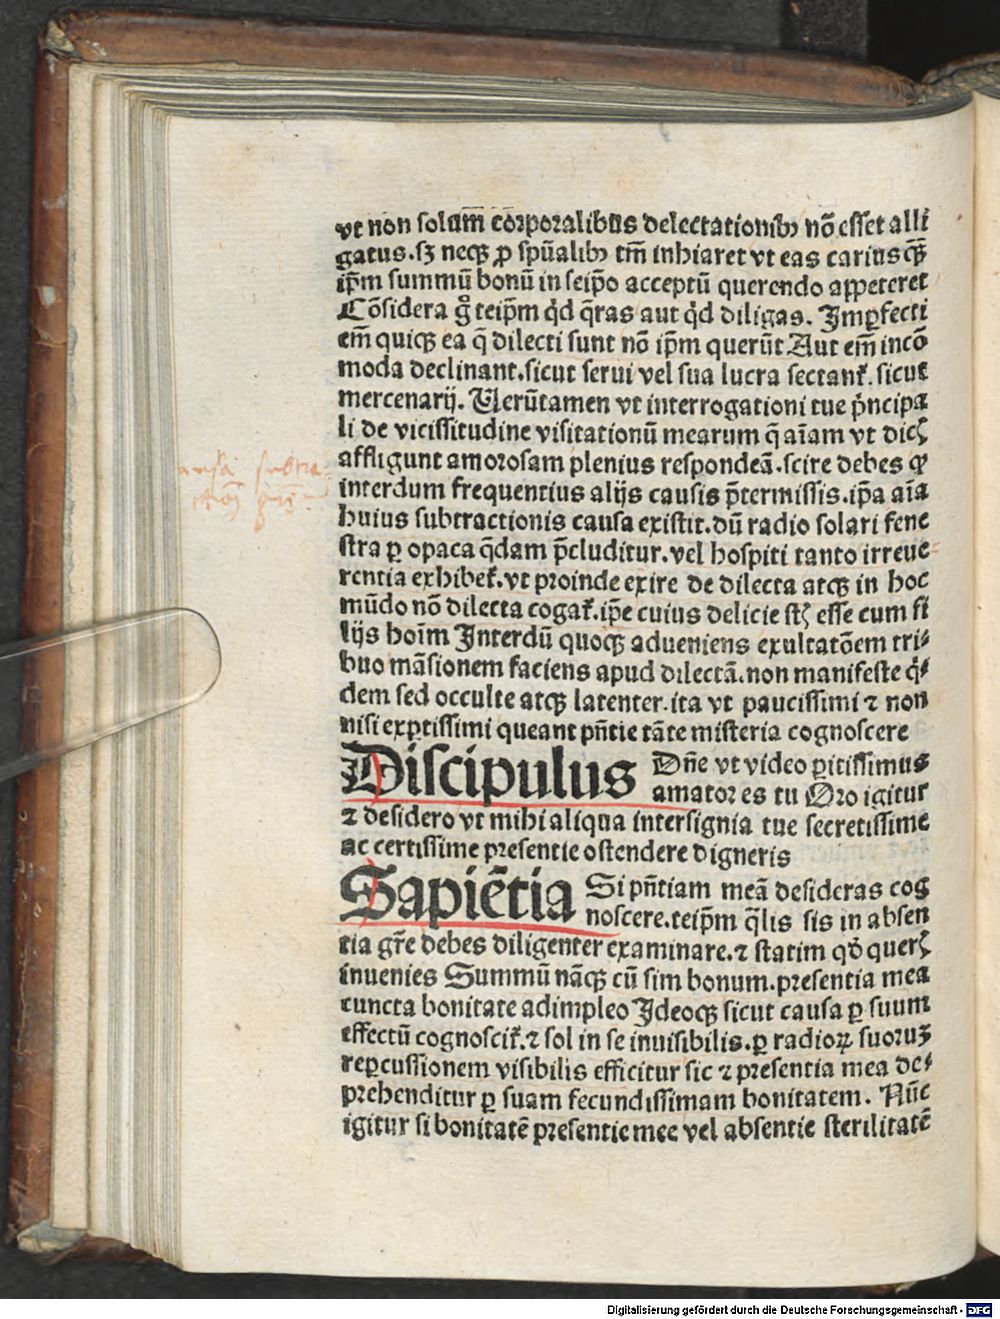 vt non solum̄ corporalibus delectationibꝫ nō esset alli
gatus. sꝫ neqꝫ ꝓ spūalibꝫ tm̄ inhiaret vt eas carius qꝫ̄
ip̄m summū bonū in seip̄o acceptū querendo appeteret
Cōsidera gͦ teip̄m qͥd q̄ras aut qͥd diligas. Imꝑfecti
em̄ quiqꝫ ea q̄ dilecti sunt nō ip̄m querūt Aut em̄ incō
moda declinant. sicut serui vel sua lucra sectant᷑. sicut
mercenarij. Uerūtamen vt interrogationi tue pͥncipa
li de vicissitudine visitationū mearum q̄ aīam vt dicꝭ
affligunt amorosam plenius respondeā. scire debes ꝙ
interdum frequentius alijs causis p̄termissis. ip̄a aīa
huius subtractionis causa existit. dū radio solari fene
stra ꝑ opaca q̄dam p̄cluditur. vel hospiti tanto irreue⸗
rentia exhibet᷑. vt proinde exire de dilecta atqꝫ in hoc
mūdo nō dilecta cogat᷑. ip̄e cuius delicie st̄ꝭ esse cum fi
lijs hoīm Interdū quoqꝫ adueniens exultatōem tri⸗
buo māsionem faciens apud dilectā. non manifeste qͥ⸗
dem sed occulte atqꝫ latenter. ita vt paucissimi ⁊ non
nisi exꝑtissimi queant pn̄tie tāte misteria cognoscere
Discipulus Dn̄e vt video ꝑitissimus
amator es tu Oro igitur
⁊ desidero vt mihi aliqua intersignia tue secretissime
ac certissime presentie ostendere digneris
Sapiētia Si pn̄tiam meā desideras cog
noscere. teip̄m q̄lis sis in absen
tia gr̄e debes diligenter examinare. ⁊ statim qd̄ querꝭ
inuenies Summū nāqꝫ cū sim bonum. presentia mea
cuncta bonitate adimpleo Ideoqꝫ sicut causa ꝑ suum
effectū cognoscit᷑. ⁊ sol in se inuisibilis. ꝑ radioꝝ suoruꝫ
reꝑcussionem visibilis efficitur sic ⁊ presentia mea de⸗
prehenditur ꝑ suam fecundissimam bonitatem. Nūc
igitur si bonitatē presentie mee vel absentie sterilitatē
Digitalisierung gefördert durch die Deutsche Forschungsgemeinschaft - DFG